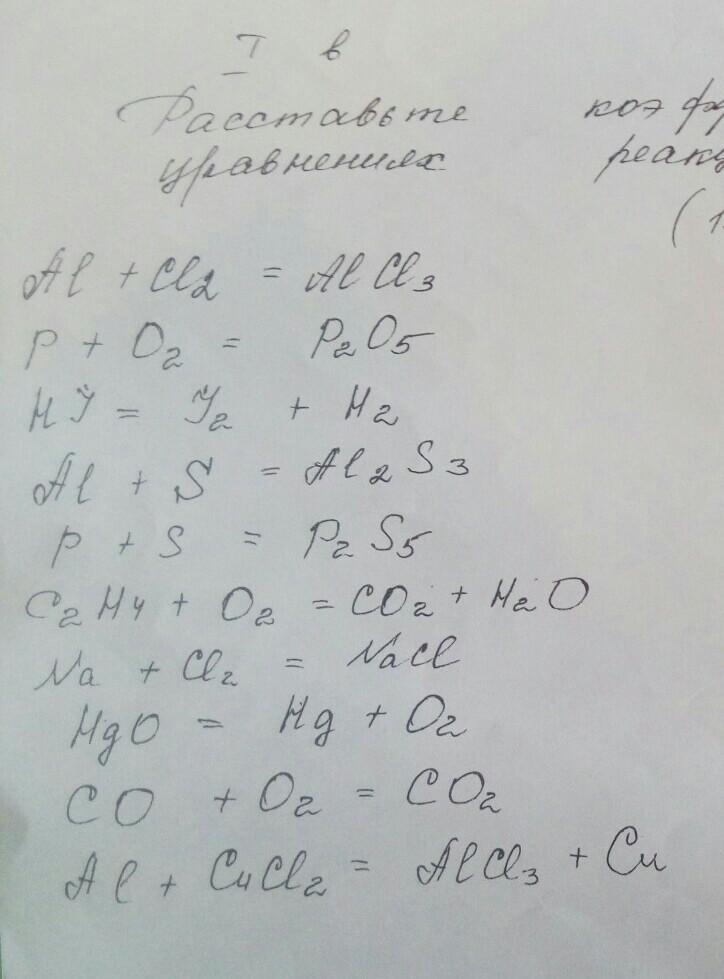 I в
Расставьте коэф
уравнениях реакц
(1
Al + Cl₂ = AlCl₃
P + O₂ = P₂O₅
HJ = J₂ + H₂
Al + S = Al₂S₃
P + S = P₂S₅
C₂H₄ + O₂ = CO₂ + H₂O
Na + Cl₂ = NaCl
HgO = Hg + O₂
CO + O₂ = CO₂
Al + CuCl₂ = AlCl₃ + Cu